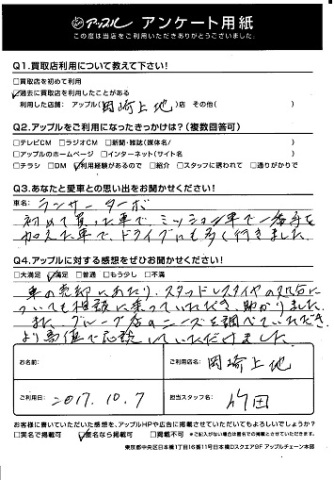 アップル アンケート用紙
この度は当店をご利用いただきありがとうございました。
Q1.買取店利用について教えて下さい!
□買取店を初めて利用
☑過去に買取店を利用したことがある
利用した店舗: アップル(岡崎上地)店 その他( )
Q2.アップルをご利用になったきっかけは?(複数回答可)
□テレビCM □ラジオCM □新聞・雑誌(媒体名/ )
□アップルのホームページ □インターネット(サイト名 )
□チラシ □DM ☑利用経験があるので □紹介 □スタッフに誘われて □通りがかりで
Q3.あなたと愛車との思い出をお聞かせください!
車名: ランサーターボ
初めて買った車で、ミッション車で一番手を
加えた車で、ドライブにも多く行きました。
Q4.アップルに対する感想をぜひお聞かせください!
□大満足 ☑満足 □普通 □もう少し □不満
車の売却にあたり、スタッドレスタイヤの処分に
ついても相談に乗っていただき、助かりました。
また、グループ店のニーズを調べていただき、
より高価で応談していただけました。
お名前: ご利用店名: 岡崎上地
ご利用日: 2017.10.7 担当スタッフ名: 竹田
お客様に書いていただいた感想を、アップルHPや広告に掲載させていただいてもよろしいでしょうか?
□実名で掲載可 ☑匿名なら掲載可 □掲載不可 ※ご記入がない場合は匿名での掲載とさせていただきます。
東京都中央区日本橋1丁目16番11号日本橋Dスクエア9F アップルチェーン本部